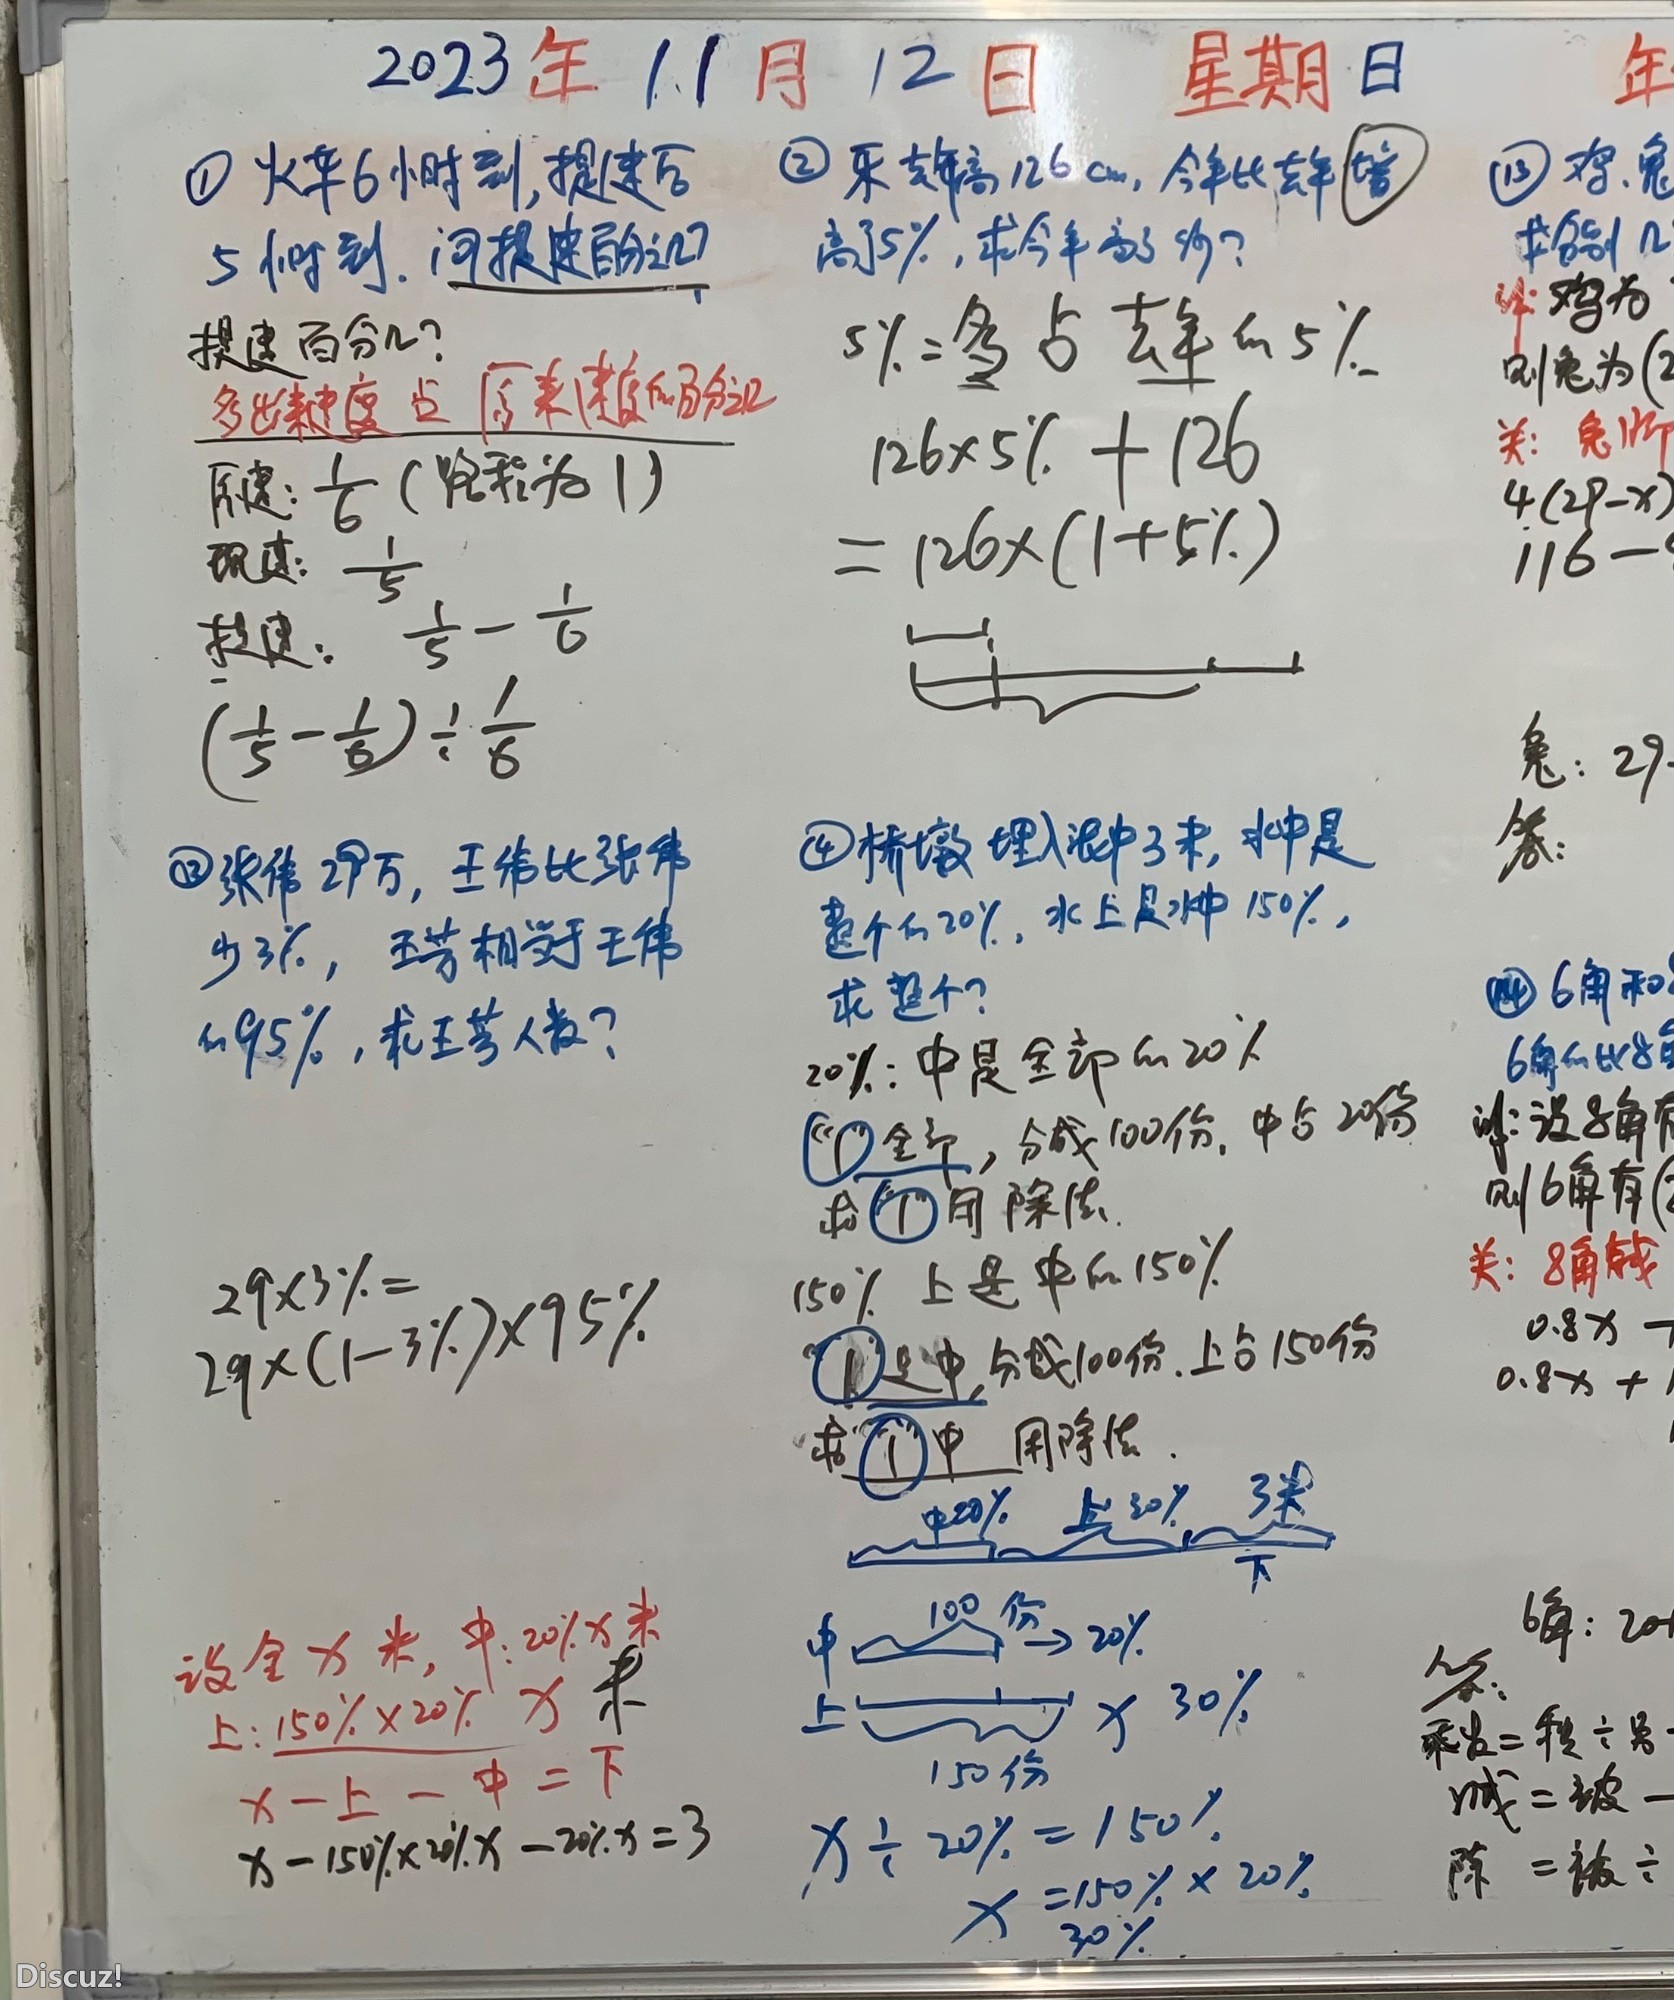 2023年 11月 12日 星期日 年
① 火车6小时到,提速后
5小时到.问提速百分之几?
提速百分几?
多出来速度 占 原来速度的百分之几
原速: 1/6 (路程为1)
现速: 1/5
提速: 1/5 - 1/6
(1/5 - 1/6) ÷ 1/6
② 乐去年高126cm, 今年比去年增
高了5%,求今年高多少?
5%=多占去年的5%
126×5% + 126
= 126×(1+5%)
③ 张伟29万, 王伟比张伟
少3%, 王芳相当于王伟
的95%,求王芳人数?
29×3%=
29×(1-3%)×95%
④ 桥墩埋入泥中3米, 水中是
整个的20%, 水上是水中150%,
求整个?
20%: 中是全部的20%
"1" 全部, 分成100份. 中占20份
求"1"用除法.
150% 上是中的150%
"1"是中,分成100份.上占150份
求"1"中 用除法.
中20% 上30% 3米
下
中 100份→20%
上 x 30%
150份
x÷20%=150%
x=150%×20%
30%
设全x米, 中:20%x米
上:150%×20% x 米
x-上-中=下
x-150%×20%x-20%x=3
⑬ 鸡、兔
求各几
设: 鸡为
则兔为(2
关: 兔脚
4(29-x)
116-
兔: 29-
答:
⑭ 6角和8
6角的比8角
设:设8角有
则6角有(2
关: 8角钱
0.8x
0.8x+1
6角: 20-
答:
乘数=积÷另一
减=被-
除=被÷
Discuz!